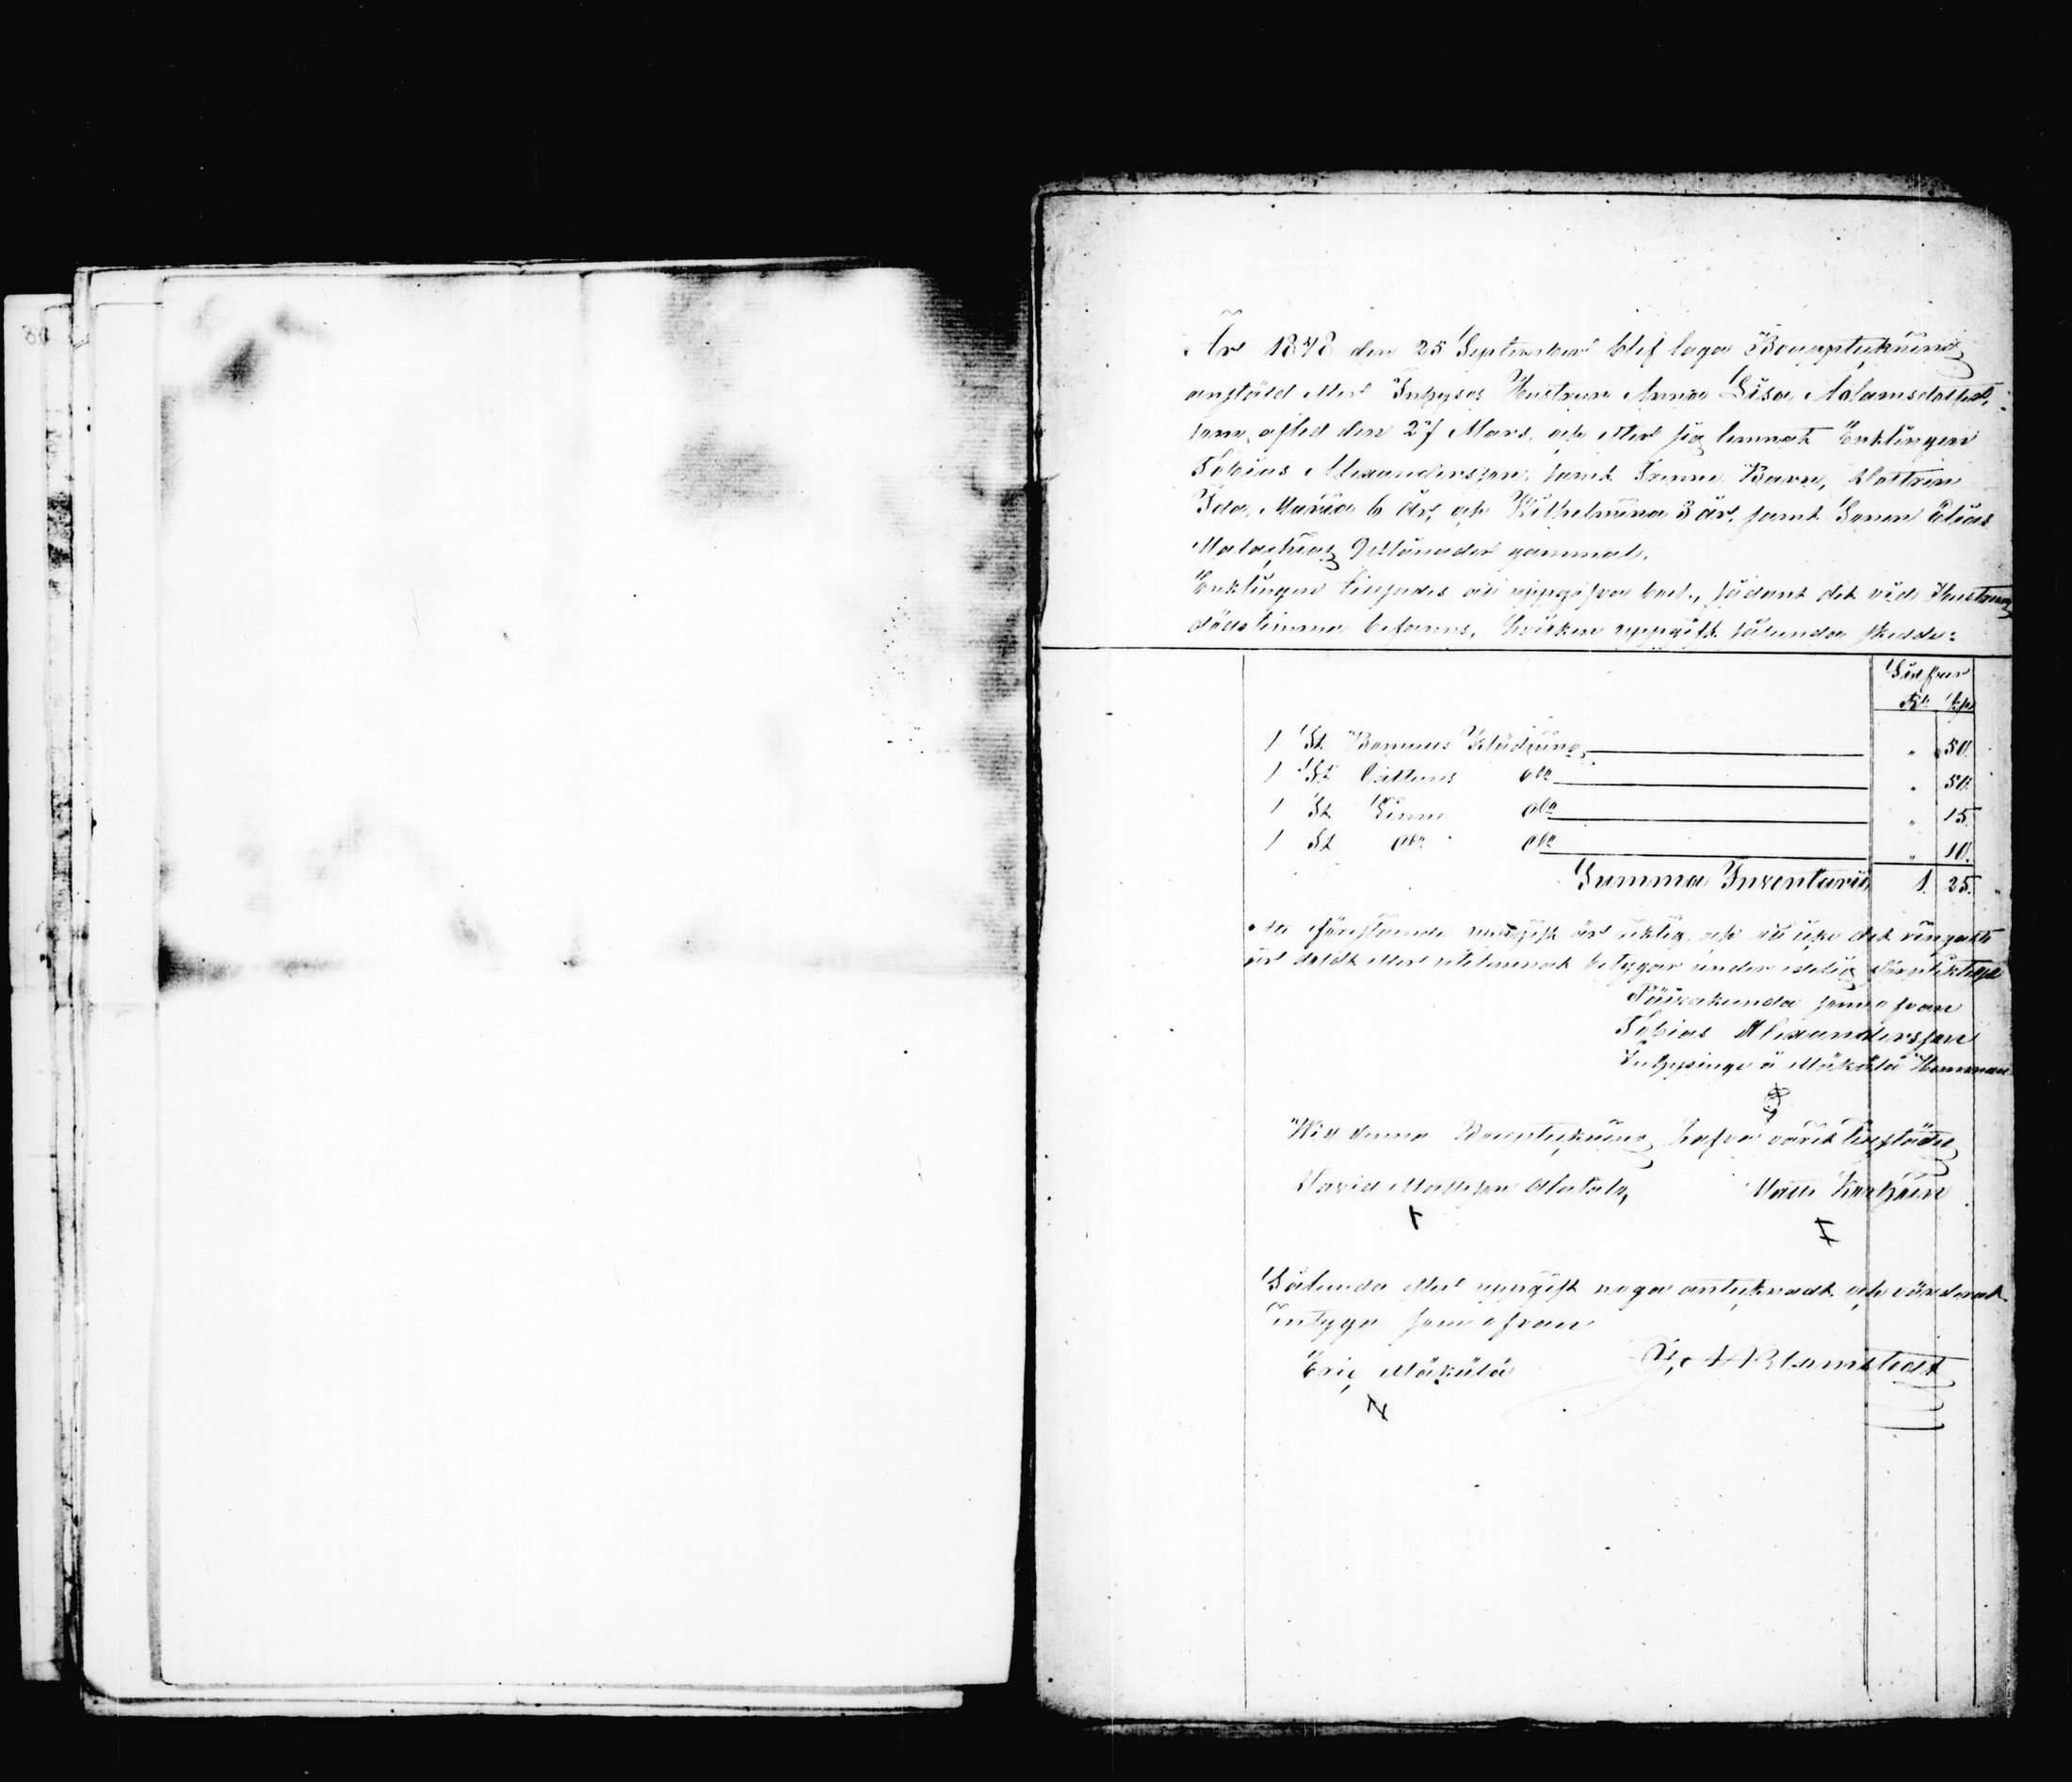 År 1848 den 25 September blef laga Bouppteckning
anstäld efter Inhyses Hustrun Anna Lisa Adamsdotter,
som afled den 27 Mars, och efter sig lemnat Enklingen
Tobias Alexandersson, samt Trenne Barn, dottren
Ida Maria 6 år, och Wilhelmina 3 år, samt Sonen Elias
Malachias 9 Månader gammal.
Enklingen tillsades att uppgifva boet, sådant det vid Hustruns
dödstimma befanns, hvilken uppgift sålunda skedde:
Silfver
Rb. Kp
1 St Bomuls Klädning " 50.
1 St Cattuns do " 50.
1 St Linne do " 15.
1 St do do " 10.
Summa Inventarii 1. 25.
Att förestående uppgift är riktig och att icke det ringaste
är doldt eller utelemnat betygar under edelig förpliktelse
Päivakunda som ofvan
Tobias Alexandersson
Inhysinge å Mäkälä Hemman
Wid denna Bouppteckning hafva varit tillstädes
David Mattsson Alatalo, Matts Karhain
Sålunda efter uppgift noga antecknadt och värderat
intyga som ofvan
Eric Mäkälä Blamstedt